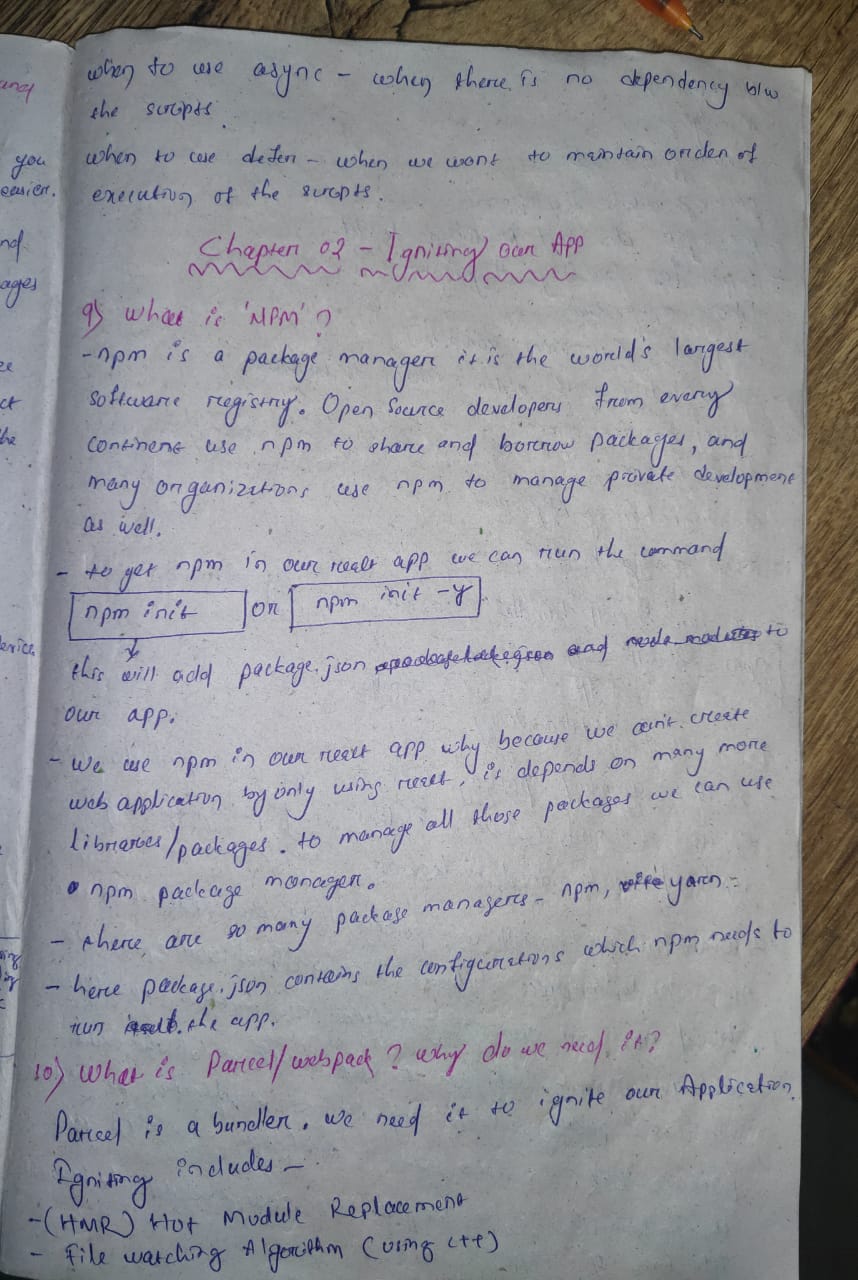 when to use async - when there is no dependency b/w
the scripts.
when to use defer - when we want to maintain order of
execution of the scripts.
Chapter 02 - Igniting our App
9) what is 'NPM'?
-npm is a package manager it is the world's largest
software registry. Open Source developers from every
continent use npm to share and borrow packages, and
many organizations use npm to manage private development
as well.
- to get npm in our react app we can run the command
npm init or npm init -y
this will add package.json and to
our app.
- we use npm in our react app why because we can't create
web application by only using react, it depends on many more
libraries/packages. to manage all those packages we can use
npm package manager.
- there are so many package managers - npm, yarn.
- here package.json contains the configurations which npm needs to
run the app.
10) what is Parcel/webpack? why do we need it?
Parcel is a bundler. we need it to ignite our Application.
Igniting includes -
-(HMR) Hot Module Replacement
- File watching Algorithm (using C++)
and
you
easier.
ages
ct
the